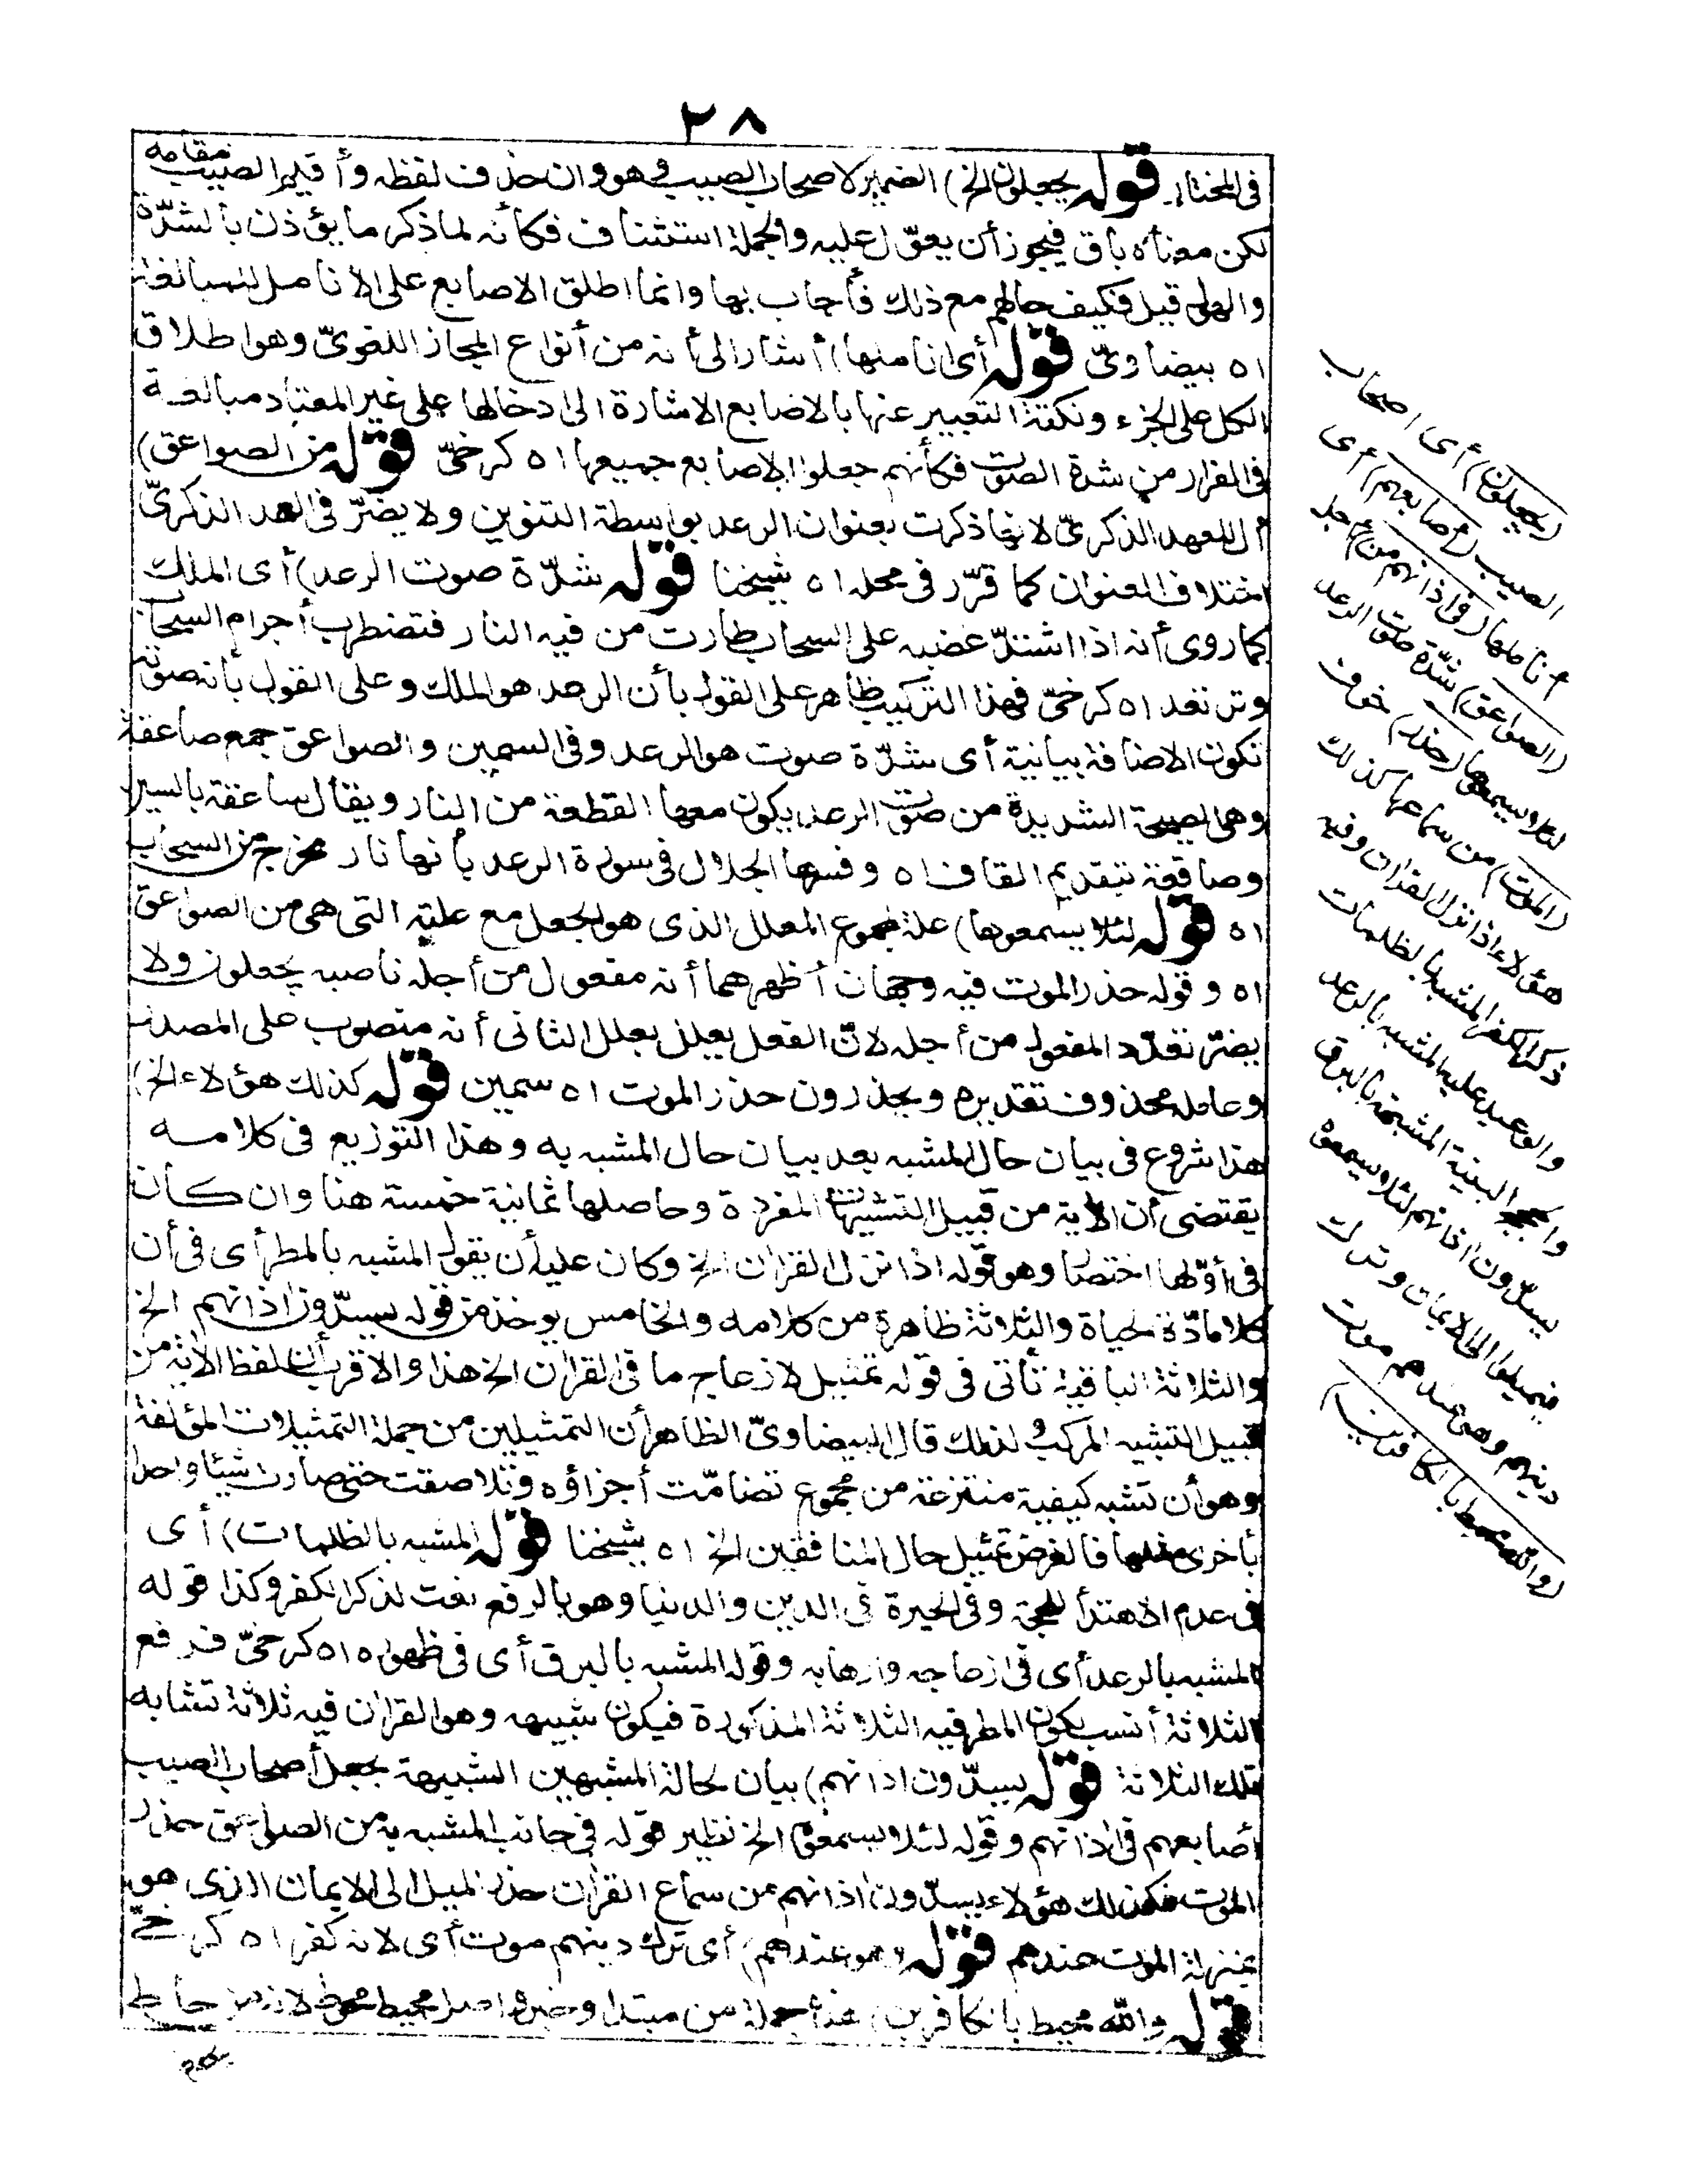 ٢٨
فى المختار قوله يجعلون الخ) الضمير لاصحاب الصيب وهو وان حذف لفظه وأقيم الصيب مقامه
لكن معناه باق فيجوز أن يعوّل عليه والجملة استئناف فكأنه لما ذكر ما يؤذن بالشدّة
والهول قيل فكيف حالهم مع ذلك فأجاب بها وانما اطلق الاصابع على الأنامل للمبالغة
اه بيضاوىّ قوله أى اناملها) أشار الى أنه من أنواع المجاز اللغوىّ وهو اطلاق
الكل على الجزء ونكتة التعبير عنها بالاصابع الاشارة الى ادخالها على غير المعتاد مبالغة
فى الفرار من شدة الصوت فكأنهم جعلوا الاصابع جميعها اه كرخىّ قوله من الصواعق)
أل للعهد الذكرىّ لانها ذكرت بعنوان الرعد بواسطة التنوين ولا يضرّ فى العهد الذكرىّ
اختلاف العنوان كما قرّر فى محله اه شيخنا قوله شدّة صوت الرعد) أى الملك
كما روى أنه اذا اشتدّ غضبه على السحاب طارت من فيه النار فتضطرب أجرام السحاب
وترتعد اه كرخىّ فهذا التركيب ظاهر على القول بأن الرعد هو الملك وعلى القول بأنه صوته
تكون الاضافة بيانية أى شدّة صوت هو الرعد وفى السمين والصواعق جمع صاعقة
وهى الصيحة الشديدة من صوت الرعد يكون معها القطعة من النار ويقال ساعقة بالسين
وصاقعة بتقديم القاف اه وفسرها الجلال فى سورة الرعد بأنها نار تخرج من السحاب
اه قوله لئلا يسمعوها) علة لمجموع المعلل الذى هو الجعل مع علته التى هى من الصواعق
اه وقوله حذر الموت فيه وجهان أظهرهما أنه مفعول من أجله ناصبه يجعلون ولا
يضرّ تعدّد المفعول من أجله لانّ الفعل يعلل بعلل الثانى أنه منصوب على المصدر
وعامله محذوف تقديره ويحذرون حذر الموت اه سمين قوله كذلك هؤلاء الخ)
هذا شروع فى بيان حال المشبه بعد بيان حال المشبه به وهذا التوزيع فى كلامه
يقتضى أن الآية من قبيل التشبيهات المفردة وحاصلها ثمانية خمسة هنا وان كان
فى أوّلها اختصار وهو قوله اذا نزل القران الخ وكان عليه أن يقول المشبه بالمطر أى فى أن
كلا مادّة الحياة والثلاثة ظاهرة من كلامه والخامس يوخذ من قوله يسدّون اذانهم الخ
والثلاثة الباقية تأتى فى قوله تمثيل لازعاج ما فى القران الخ هذا والاقرب أن لفظ الآية من
قبيل التشبيه المركب ولذلك قال البيضاوىّ الظاهر أن التمثيلين من جملة التمثيلات المؤلفة
وهو أن تشبه كيفية منتزعة من مجموع تضامّت أجزاؤه وتلاصقت حتى صارت شيئا واحدا
بأخرى مثلها فالغرض تمثيل حال المنافقين الخ اه شيخنا قوله المشبه بالظلمات) أى
فى عدم الاهتداء للمحجة وفى الحيرة فى الدين والدنيا وهو بالرفع نعت لذكر الكفر وكذا قوله
المشبه بالرعد أى فى ازعاجه وارهابه وقوله المشبه بالبرق أى فى ظهوره اه كرخىّ فرفع
الثلاثة أنسب بكون المطر فيه الثلاثة المذكورة فيكون شبيهه وهو القران فيه ثلاثة تشابه
تلك الثلاثة قوله يسدّون اذانهم) بيان لحالة المشبهين الشبيهة بجعل أصحاب الصيب
أصابعهم فى اذانهم وقوله لئلا يسمعوه الخ نظير قوله فى جانب المشبه به من الصواعق حذر
الموت فكذلك هؤلاء يسدّون اذانهم من سماع القران حذر الميل الى الايمان الذى هو
بمنزلة الموت عندهم قوله وهو عندهم) أى ترك دينهم موت أى لانه كفر اه كرخىّ
قوله والله محيط بالكافرين) هذه جملة من مبتدا وخبر واصل محيط محوط لانه من حاط
(يجعلون) أى اصحاب
الصيب (أصابعهم) أى
أناملها (فى اذانهم من) أجل
(الصواعق) شدّة صوت الرعد
لئلا يسمعوها (حذر) خوف
(الموت) من سماعها كذلك
هؤلاء اذا نزل القران وفيه
ذكر الكفر المشبه بالظلمات
والوعيد عليه المشبه بالرعد
والحجج البينة المشبهة بالبرق
يسدّون اذانهم لئلا يسمعوه
فيميلوا الى الايمان وترك
دينهم وهو عندهم موت
(والله محيط بالكافرين)